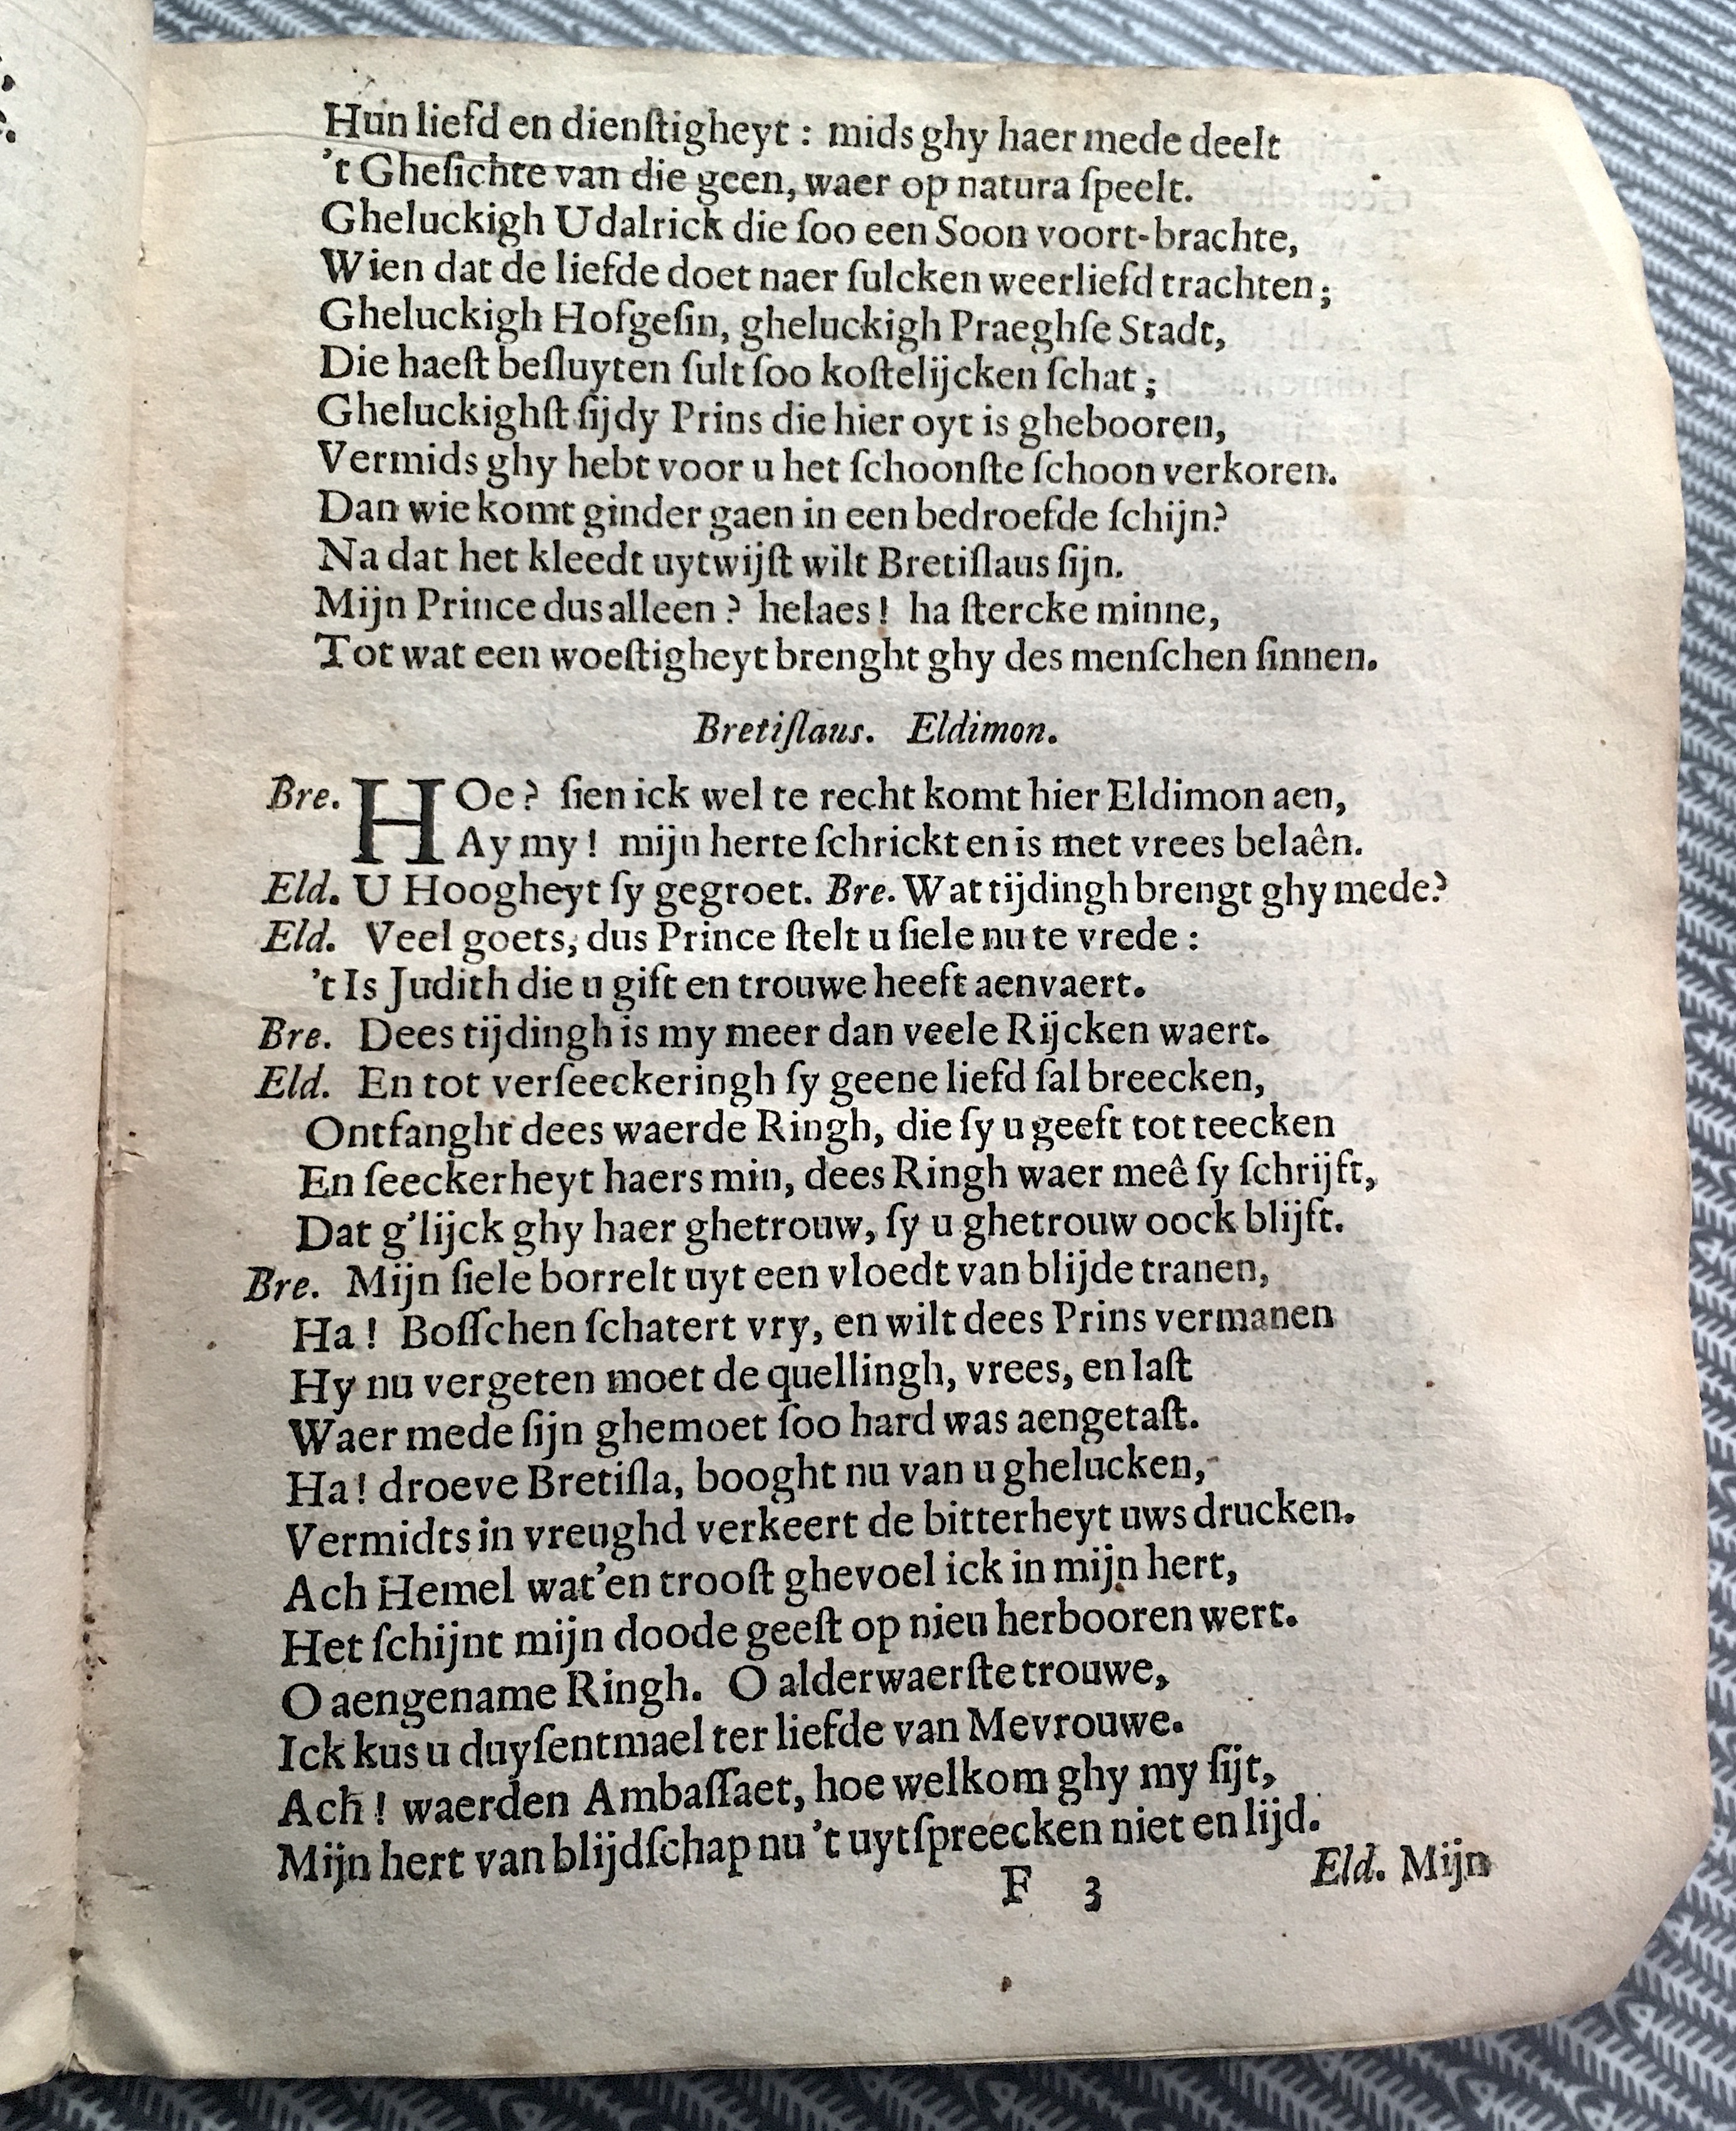 Hun liefd en dienſtigheyt : mids ghy haer mede deelt
't Gheſichte van die geen, waer op natura ſpeelt.
Gheluckigh Udalrick die ſoo een Soon voort-brachte,
Wien dat de liefde doet naer ſulcken weerliefd trachten;
Gheluckigh Hofgeſin, gheluckigh Praeghſe Stadt,
Die haeſt beſluyten ſult ſoo koſtelijcken ſchat;
Gheluckighſt ſijdy Prins die hier oyt is ghebooren,
Vermids ghy hebt voor u het ſchoonſte ſchoon verkoren.
Dan wie komt ginder gaen in een bedroefde ſchijn?
Na dat het kleedt uytwijſt wilt Bretiſlaus ſijn.
Mijn Prince dus alleen? helaes! ha ſtercke minne,
Tot wat een woeſtigheyt brenght ghy des menſchen ſinnen.
Bretiſlaus. Eldimon.
Bre. HOe? ſien ick wel te recht komt hier Eldimon aen,
Ay my! mijn herte ſchrickt en is met vrees belaên.
Eld. U Hoogheyt ſy gegroet. Bre. Wat tijdingh brengt ghy mede?
Eld. Veel goets, dus Prince ſtelt u ſiele nu te vrede :
't Is Judith die u gift en trouwe heeft aenvaert.
Bre. Dees tijdingh is my meer dan veele Rijcken waert.
Eld. En tot verſeeckeringh ſy geene liefd ſal breecken,
Ontfanght dees waerde Ringh, die ſy u geeft tot teecken
En ſeeckerheyt haers min, dees Ringh waer meê ſy ſchrijft,
Dat g'lijck ghy haer ghetrouw, ſy u ghetrouw oock blijft.
Bre. Mijn ſiele borrelt uyt een vloedt van blijde tranen,
Ha! Boſſchen ſchatert vry, en wilt dees Prins vermanen
Hy nu vergeten moet de quellingh, vrees, en laſt
Waer mede ſijn ghemoet ſoo hard was aengetaſt.
Ha! droeve Bretiſla, booght nu van u ghelucken,
Vermidts in vreughd verkeert de bitterheyt uws drucken.
Ach Hemel wat'en trooſt ghevoel ick in mijn hert,
Het ſchijnt mijn doode geeſt op nieu herbooren wert.
O aengename Ringh. O alderwaerſte trouwe,
Ick kus u duyſentmael ter liefde van Mevrouwe.
Ach! waerden Ambaſſaet, hoe welkom ghy my ſijt,
Mijn hert van blijdſchap nu 't uytſpreecken niet en lijd.
F 3 Eld. Mijn